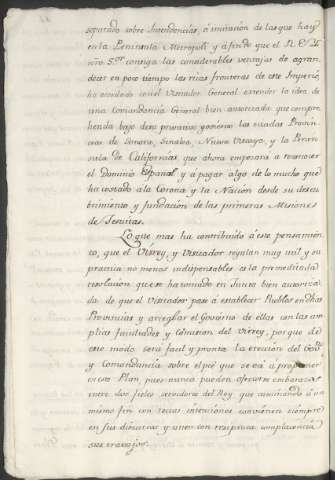 separado sobre Intendencias, á imitacion de las que hay
en la Peninsula Metropoli y á fin de que el R. E.
ntro Sor. consiga las considerables ventajas de agran-
decer en poco tiempo las ricas fronteras de este Imperio,
ha acordado con el Visitador General extender la idea de
una Comandancia General bien autorizada que compre-
henda bajo de su privativo govierno las citadas Provin-
cias de Sonora, Sinaloa, Nueva Vizcaya, y la Penin-
sula de Californias que ahora empezará a reconocer
el Dominio Español y á pagar algo de lo mucho que
ha costado á la Corona, y la Nación desde su descu-
brimiento y fundacion de las primeras Misiones
de Jesuitas.
Lo que mas ha contribuido á este pensamien-
to, que el Virrey, y Visitador reputan muy util y en
practica no menos indispensable es la premeditada
resolucion que se ha tomado en Junta bien autoriza-
da de que el Visitador pase á establecer Pueblos en dhas
Provincias y arreglar el Govierno de ellas con las am-
plias facultades y comision del Virrey, porque de
este modo será facil y pronta la ereccion del Govo.
y Comandancia sobre el pie que se vá á proponer
en este Plan, pues nunca pueden ofrecerse embarazos
entre dos fieles servidores del Rey que caminando á un
mismo fin con rectas intenciones convienen siempre
en sus discursos y unen con reciproca complacencia
sus trabajos.